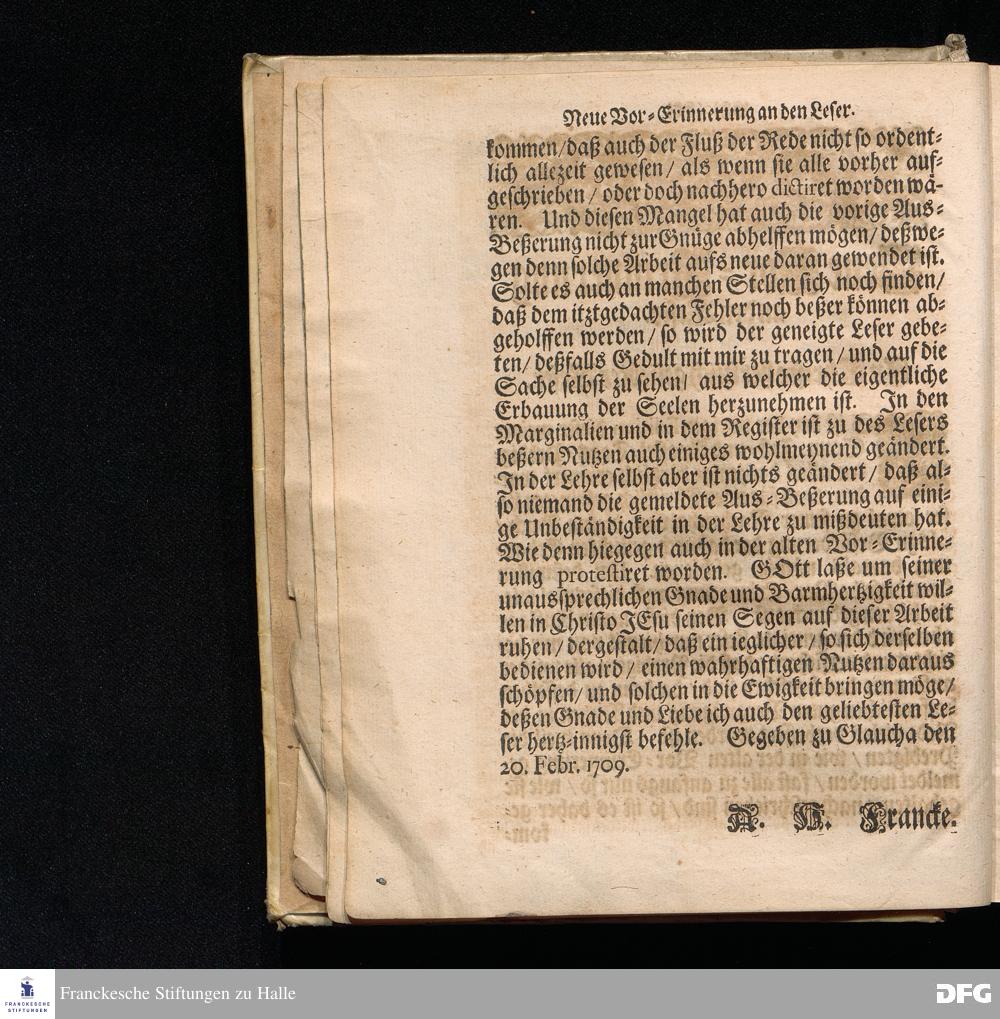 Neue Vor-Erinnerung an den Leser.
kommen/daß auch der Fluß der Rede nicht so ordent-
lich allezeit gewesen/ als wenn sie alle vorher auf-
geschrieben/ oder doch nachhero dictiret worden wä-
ren. Und diesen Mangel hat auch die vorige Aus-
Beßerung nicht zur Gnüge abhelffen mögen/ deßwe-
gen denn solche Arbeit aufs neue daran gewendet ist.
Solte es auch an manchen Stellen sich noch finden/
daß dem itztgedachten Fehler noch beßer können ab-
geholffen werden/ so wird der geneigte Leser gebe-
ten/ deßfalls Gedult mit mir zu tragen/ und auf die
Sache selbst zu sehen/ aus welcher die eigentliche
Erbauung der Seelen herzunehmen ist. In den
Marginalien und in dem Register ist zu des Lesers
beßern Nutzen auch einiges wohlmeynend geändert.
In der Lehre selbst aber ist nichts geändert/ daß al-
so niemand die gemeldete Aus-Beßerung auf eini-
ge Unbeständigkeit in der Lehre zu mißdeuten hat.
Wie denn hiegegen auch in der alten Vor-Erinne-
rung protestiret worden. GOtt laße um seiner
unaussprechlichen Gnade und Barmhertzigkeit wil-
len in Christo JEsu seinen Segen auf dieser Arbeit
ruhen/ dergestalt/ daß ein ieglicher/ so sich derselben
bedienen wird/ einen wahrhaftigen Nutzen daraus
schöpfen/ und solchen in die Ewigkeit bringen möge/
deßen Gnade und Liebe ich auch den geliebtesten Le-
ser hertz-innigst befehle. Gegeben zu Glaucha den
20. Febr. 1709.
A. H. Francke.
FRANCKESCHE
STIFTUNGEN
Franckesche Stiftungen zu Halle
DFG